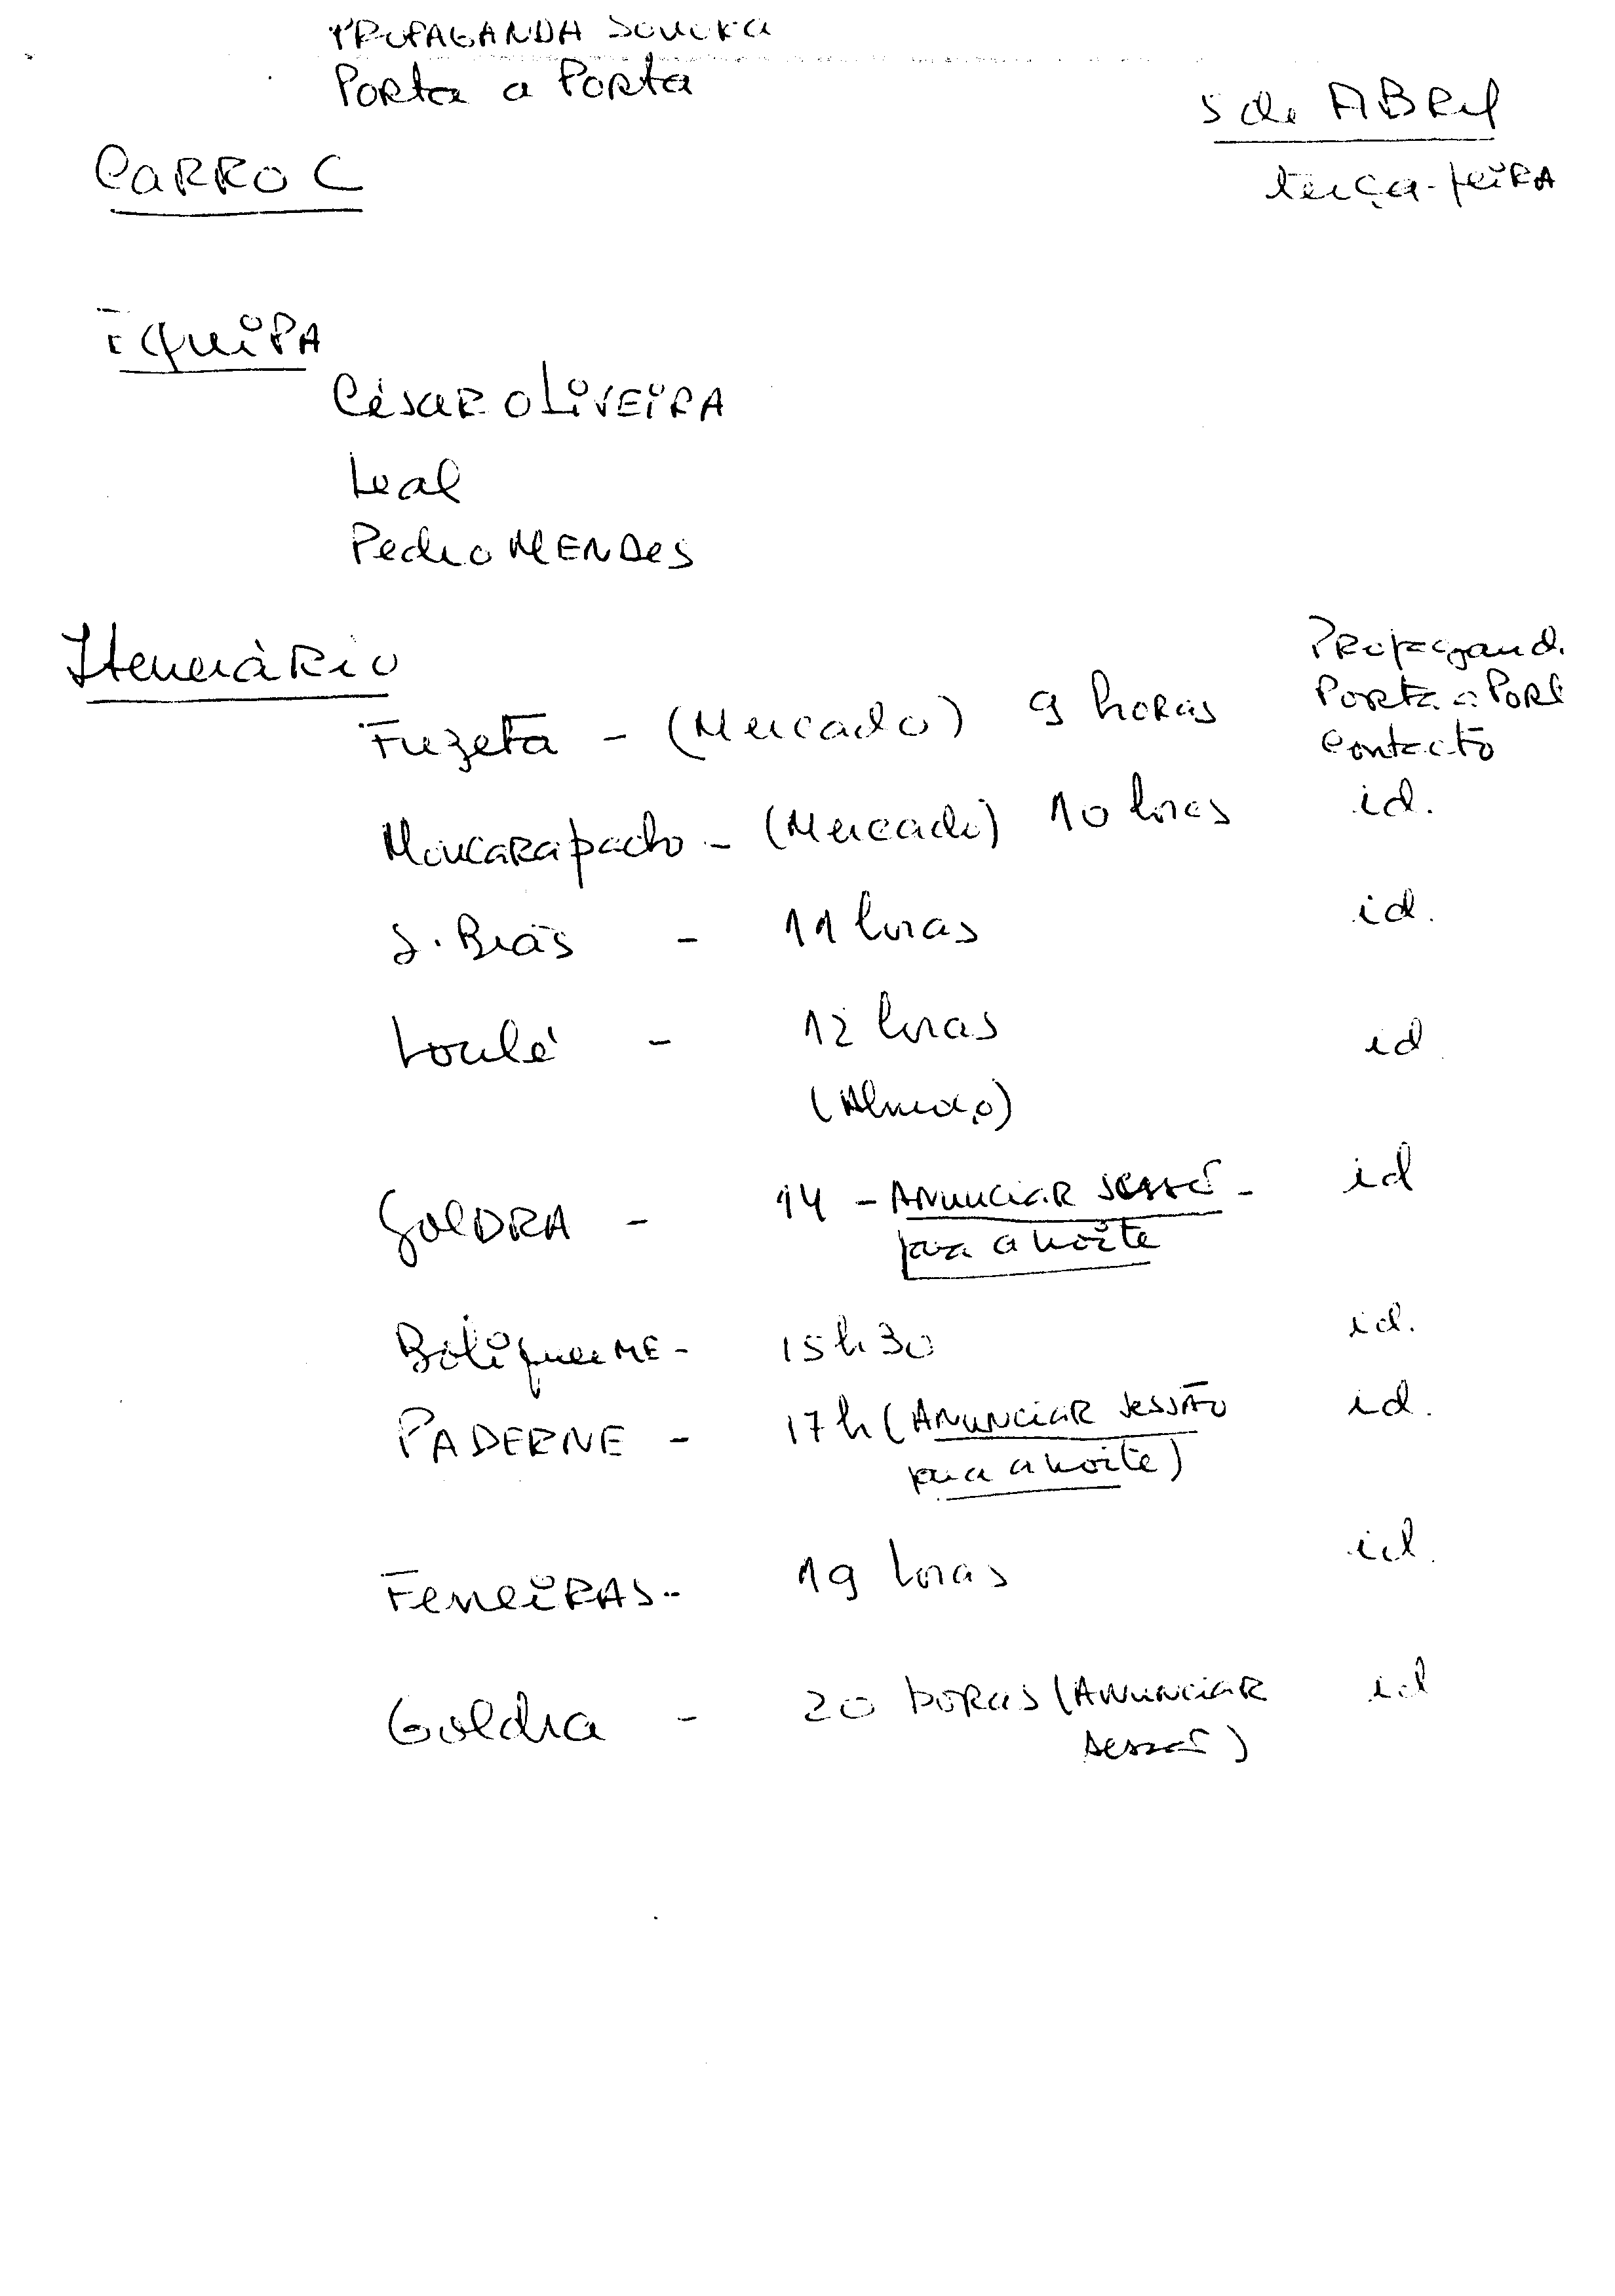 PROPAGANDA Sonora
Porta a Porta
5 de ABRIL
terça-feira
CARRO C
Equipa
César Oliveira
Leal
Pedro MENDES
Itenerário
Propagand.
Porta a Port
Contacto
Fuzeta - (Mercado) 9 horas
Moncarapacho - (Mercado) 10 horas id.
S. Brás - 11 horas id.
Loulé - 12 horas id
(Almoço)
GOLDRA - 14 - ANUNCIAR sessão - id
para a noite
Boliqueime - 15h30 id.
PADERNE - 17h (ANUNCIAR sessão id.
para a noite)
Ferreiras - 19 horas id.
Goldra - 20 horas (ANUNCIAR id
sessão)